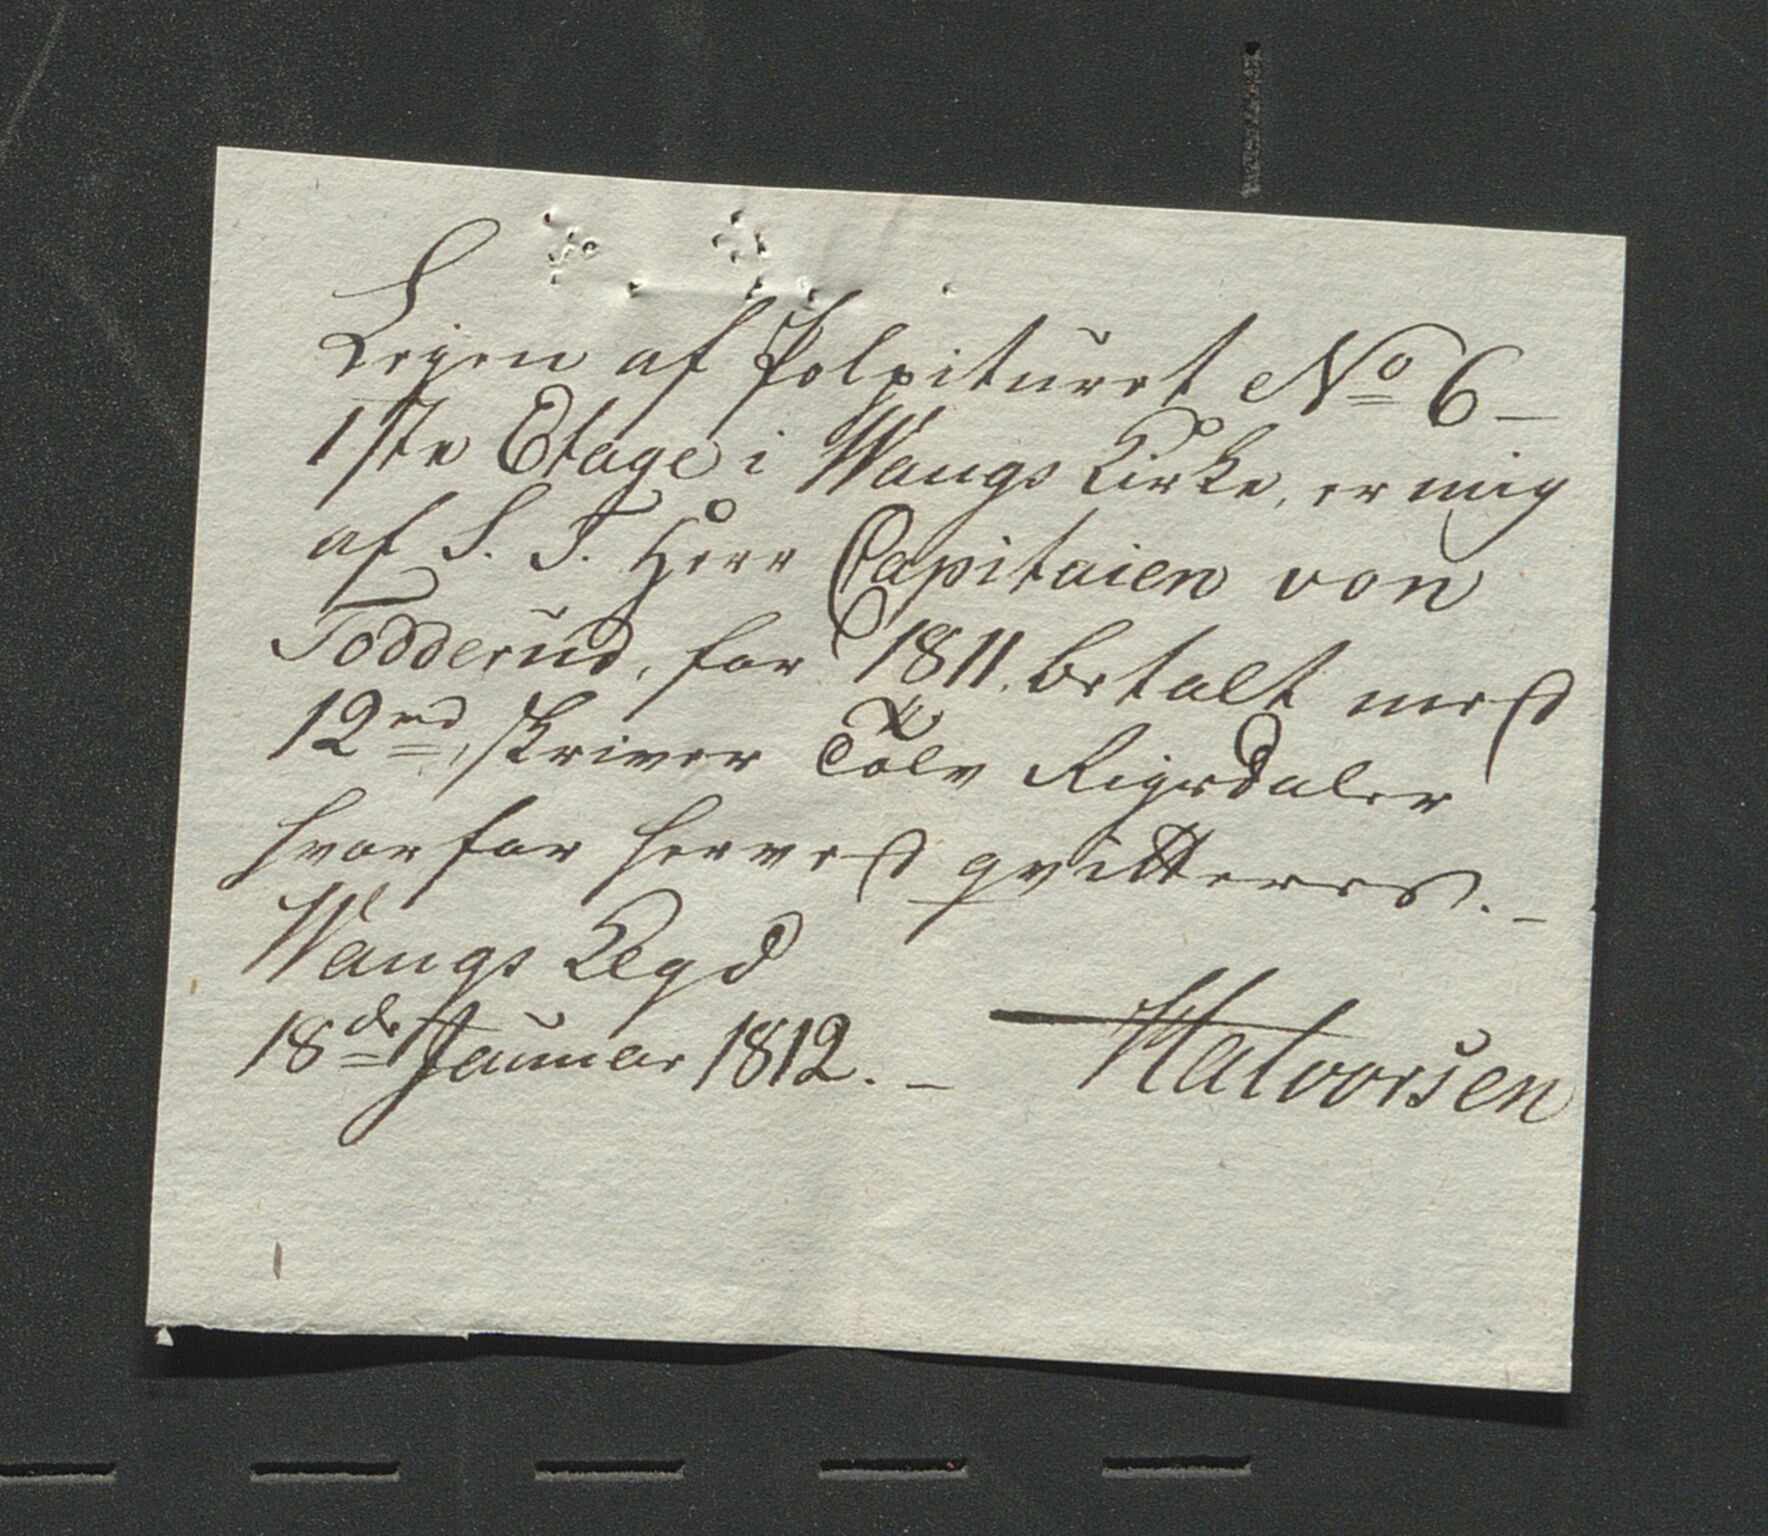 Leyen af Polpituret No 6 –
1ste Etage i Wangs Kirke, er mig
af S. T. Herr Capitaien von
Todderud, for 1811. betalt med
12rd, skriver Tolv Rigsdaler
hvorfor herved qvitteres. –
Wangs
18de Januar 1812. – Halvorsen